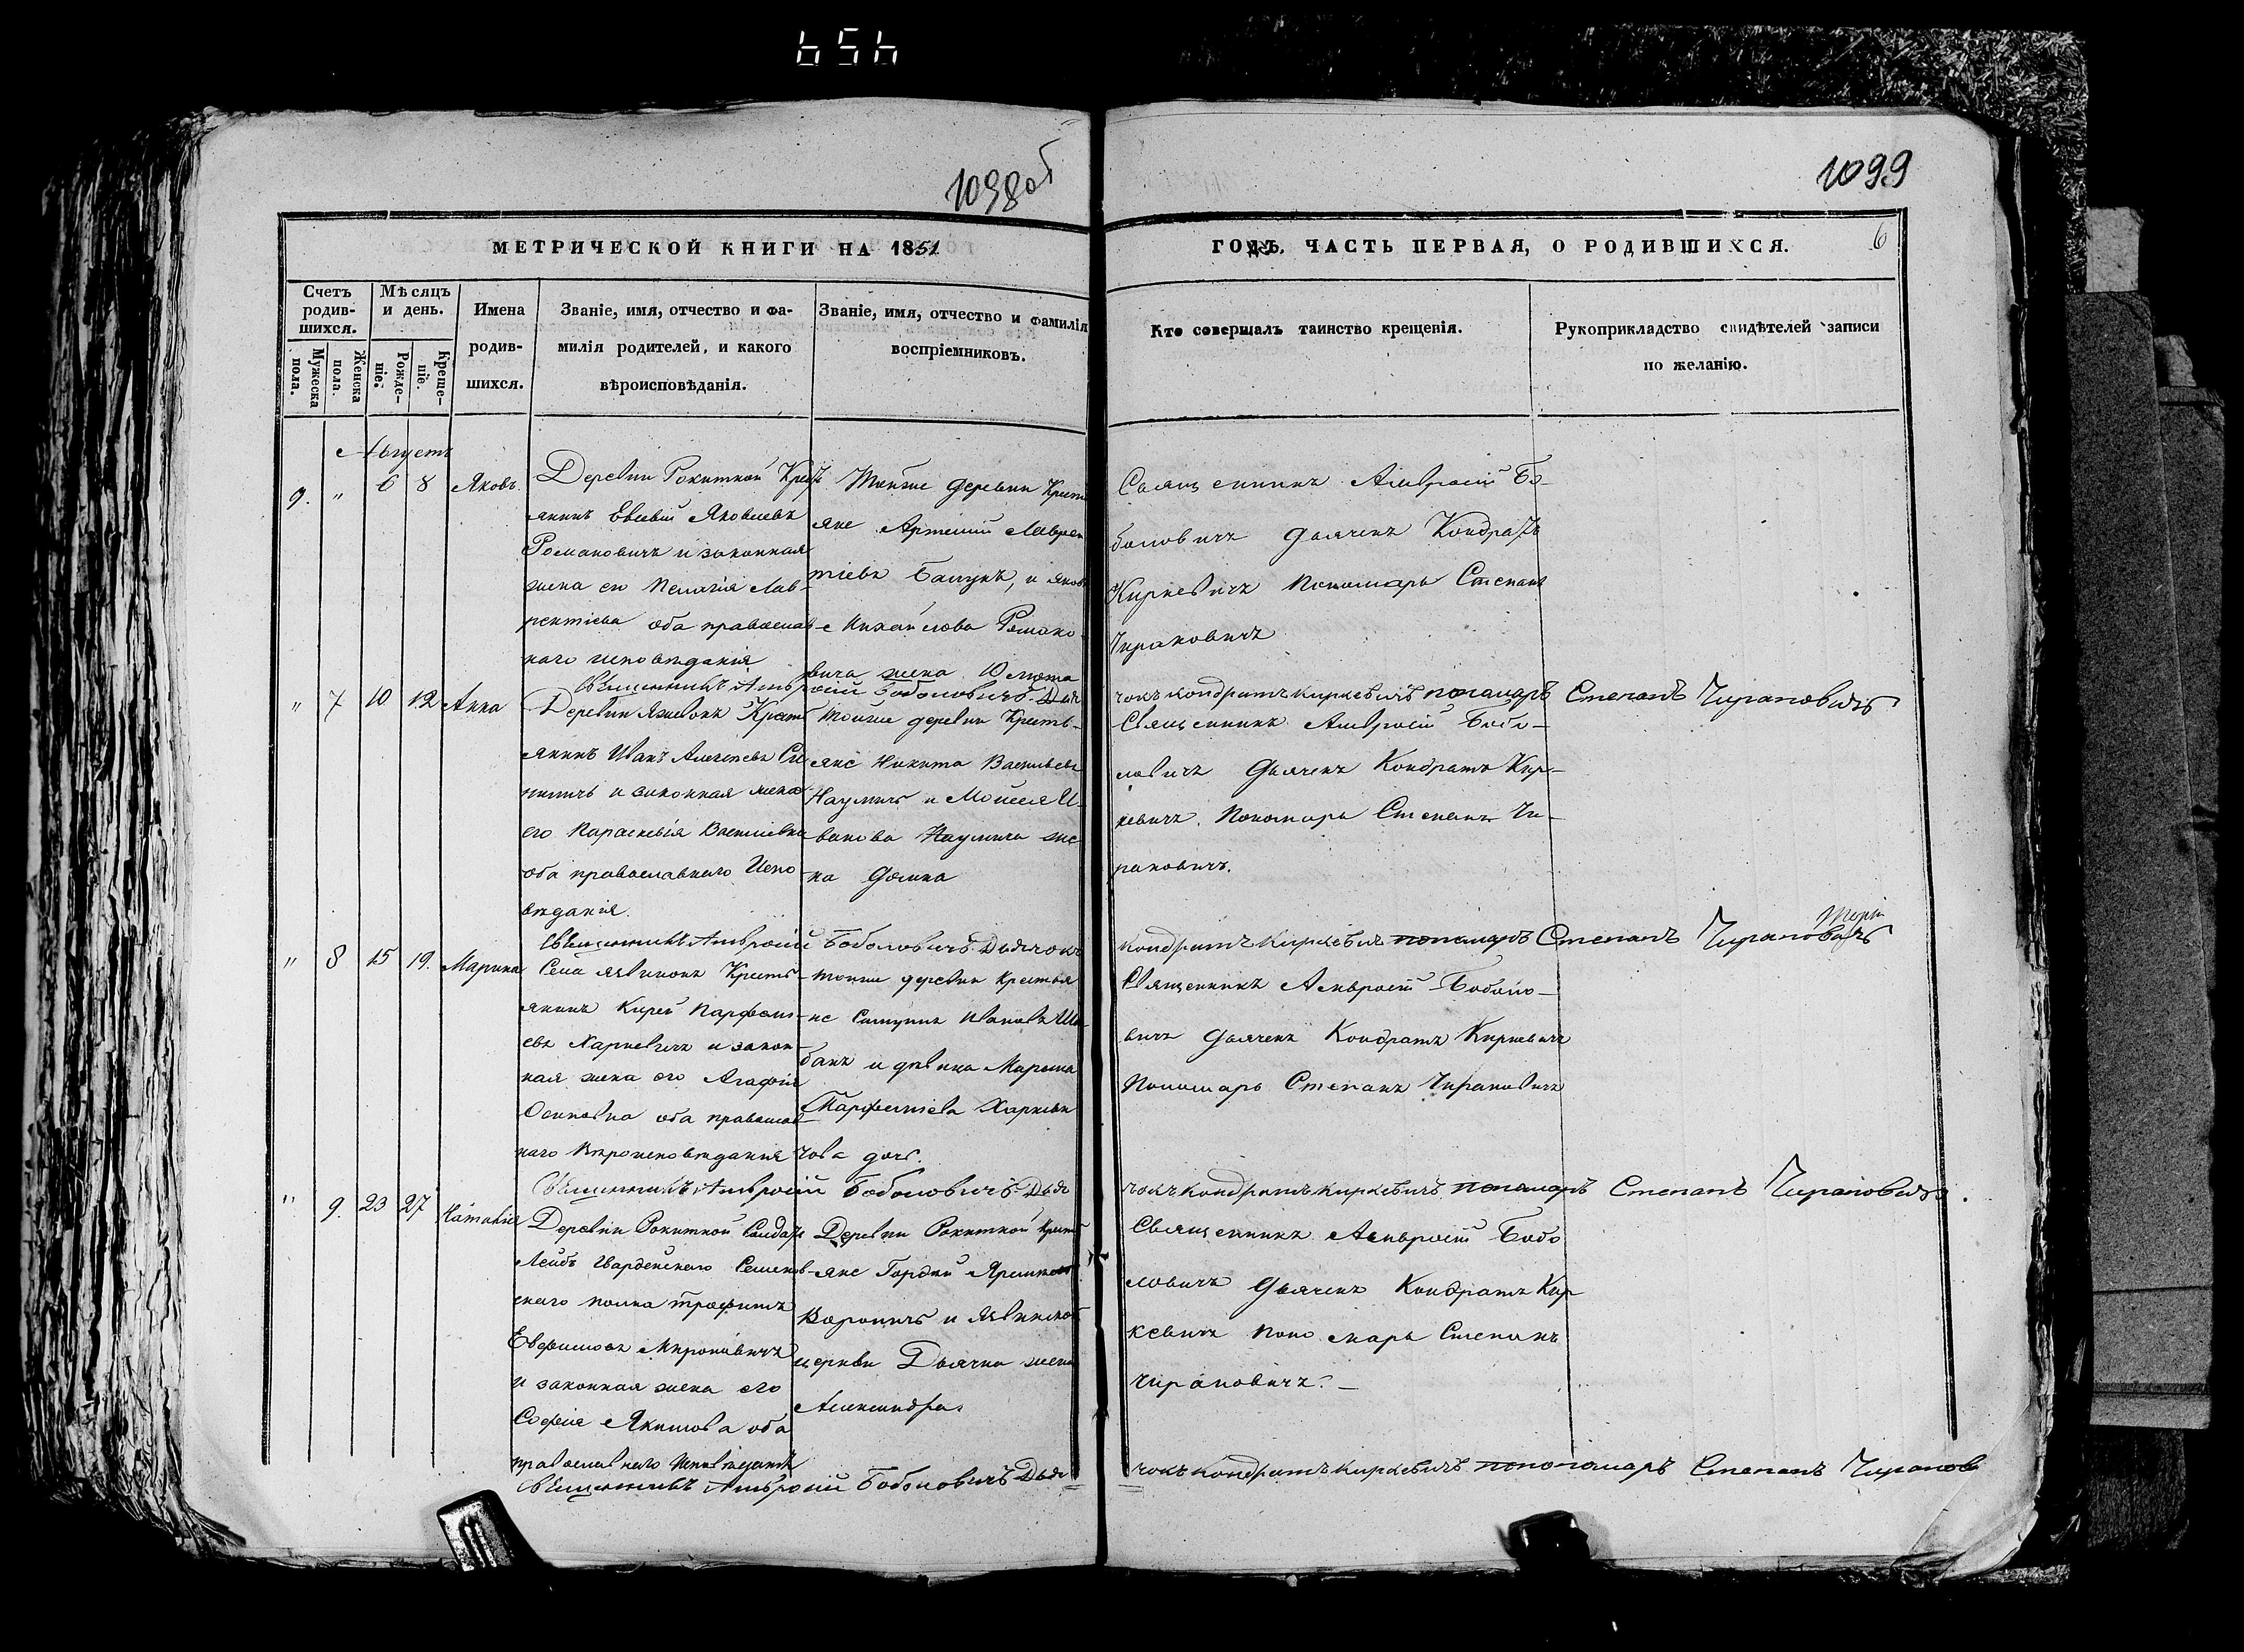 654
1098 об
1099
МЕТРИЧЕСКОЙ КНИГИ НА 1851
ГОДЪ, ЧАСТЬ ПЕРВАЯ, О РОДИВШИХСЯ.
6
Счетъ родив-шихся.
Мужеска пола.
Женска пола.
Мѣсяцъ и день.
Рожде-ніе.
Креще-ніе.
Имена
родив-
шихся.
Званіе, имя, отчество и фа-
милія родителей, и какого
вѣроисповѣданія.
Званіе, имя, отчество и фамилія
воспріемниковъ.
Кто совершалъ таинство крещенія.
Рукоприкладство свидѣтелей записи
по желанію.
Августъ
9. " 6 8 Яковъ.
Деревни Рокитной Крест
янинъ Евсевій Яковлевъ
Романовичъ и законная
жена его Пелагія Лав-
рентіева оба православ-
наго исповѣданія
Тойже деревни Крест
яне Артемій Лаврен
тіевъ Башукъ, и Яковъ
Михайлова Романо-
вича жена
Священникъ Амвросій Бо-
боловичъ Дьячекъ Кондратъ
Киркевичъ Пономаръ Степанъ
Чирановичъ
Священникъ Амвросій Боболовичъ Дья
чокъ Кондратъ Киркевичъ пономаръ Степанъ Чирановичъ
" 7 10 12 Анна
Деревни Крест
янинъ Иванъ
и законная жена
его Параскевія Василіевна
оба православнаго Испо
вѣданія.
Тойже деревни Кресть-
яне Никита Васильевъ
Наумичъ и Моисея И-
ванова Наумича же
на Домна
Священникъ Амвросій Бобо-
ловичъ Дьячекъ Кондратъ Кир-
кевичъ. Пономаръ Степанъ Чи-
рановичъ.
Священникъ Амвросій Боболовичъ Дьячокъ
Кондратъ Киркевичъ пономаръ Степанъ Чирановичъ
" 8 15 19. Марина
Села Явинокъ Кресть-
янинъ Кирей Парфеніи-
евъ Харкевичъ и закон-
ная жена его Агафія
Осиповна оба православ-
наго Вѣроисповѣданія
Тойже деревни Крестья
не Иановъ
банъ и дѣвица Марьяна
Парфеніева Харкеви
чова дочь.
Священникъ Амвросій Боболо-
вичъ Дьячекъ Кондратъ Киркевичъ
Пономаръ Степанъ Чирановичъ
Священникъ Амвросій Боболовичъ Дья
чокъ Кондратъ Киркевичъ пономаръ Степанъ Чирановичъ.
" 9. 23 27 Наталія
Деревни Рокитной Солдатъ
Лейбъ Гвардейскаго Семенов-
скаго полка Трофимъ
Евфимовъ Мироновичъ
и законная жена его
Софія Якимова оба
православнаго исповѣданія
Деревни Рокитной Крест
яне Гордій
Вороничъ и Явинской
церкви Дьячка жена
Александра
Священникъ Амвросій Бобо
ловичъ Дьячекъ Кондратъ Кир
кевичъ Пономаръ Степанъ
Чирановичъ. –
Священникъ Амвросій Боболовичъ Дья
чокъ Кондратъ Киркевичъ Степанъ Чиранов